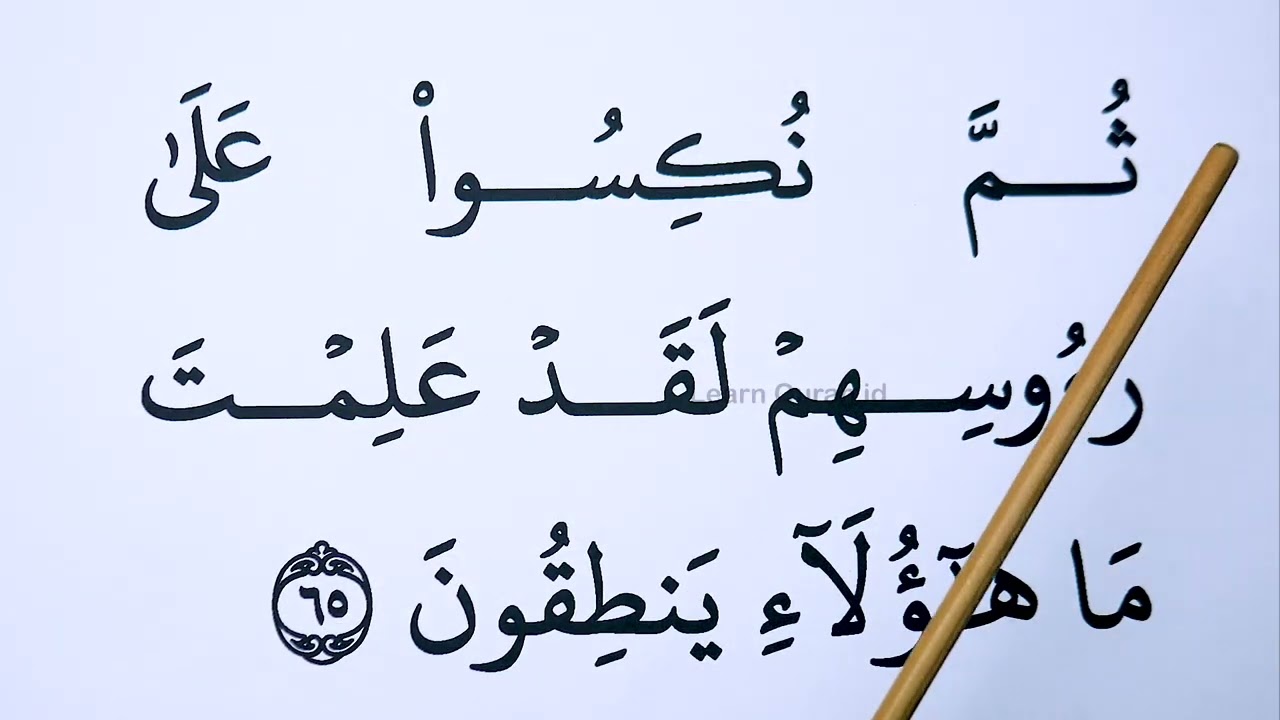 ثُمَّ نُكِسُواْ عَلَىٰ
رُءُوسِهِمْ لَقَدْ عَلِمْتَ
مَا هَٰٓؤُلَآءِ يَنطِقُونَ ٦٥
Learn Quran.id